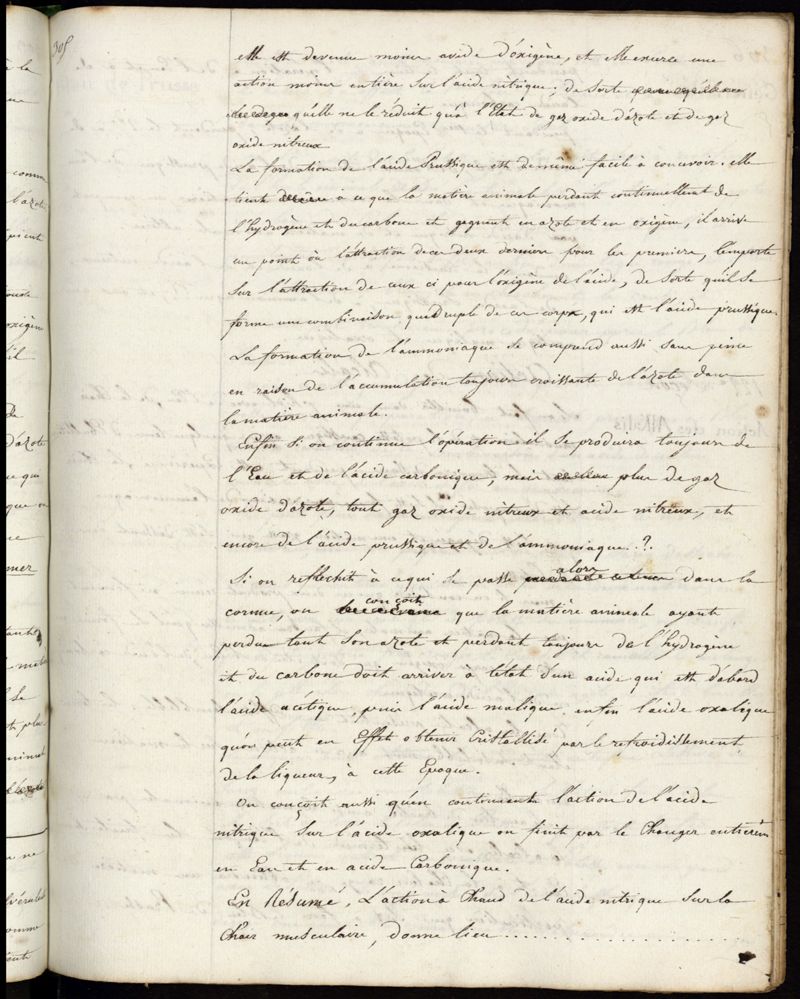 305
elle est devenue moins avide d'oxigène, et elle exerce une
action moins entière sur l'acide nitrique; de sorte
qu'elle ne le réduit qu'à l'Etat de gaz oxide d'azote et de gaz
oxide nitreux
La formation de l'acide Prussique est de même facile à concevoir. elle
tient à ce que la matière animale perdant continuellement de
l'hydrogène et du carbone et gagnant en azote et en oxigène, il arrive
un point où l'attraction de ces deux derniers pour les premiers, l'emporte
sur l'attraction de ceux ci pour l'oxigène de l'acide, de sorte qu'il se
forme une combinaison quadruple de ces corps, qui est l'acide prussique.
La formation de l'ammoniaque se comprend aussi sans peine
en raison de l'accumulation toujours croissante de l'azote dans
la matière animale.
Enfin si on continue l'opération il se produira toujours de
l'Eau et de l'acide carbonique, mais plus de gaz
oxide d'azote, tout gaz oxide nitreux et acide nitreux, et
encore de l'acide prussique et de l'ammoniaque.?
Si on reflechit à ce qui se passe alors dans la
cornue, on conçoit que la matière animale ayant
perdue tout son azote et perdant toujours de l'hydrogène
et du carbone doit arriver à l'état d'un acide qui est d'abord
l'acide acétique, puis l'acide malique, enfin l'acide oxalique
qu'on peut en Effet obtenir Cristallisé par le refroidissement
de la liqueur, à cette Epoque.
On conçoit aussi qu'en continuant l'action de l'acide
nitrique sur l'acide oxalique on finit par le Changer entièrem
en Eau et en acide Carbonique.
En Résumé, L'action à Chaud de l'acide nitrique sur la
Chair musculaire, donne lieu ....................